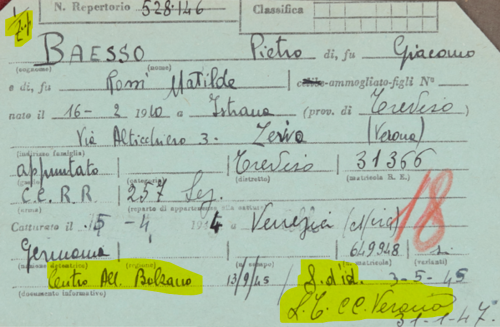 N. Repertorio 528·146 Classifica
BAESSO Pietro di, fu Giacomo
(cognome) (nome)
e di, fu Rossi Matilde celibe-ammogliato-figli N°
nato il 16- 2 1910 a Istrana (prov. di Treviso
Via Altichiero 3- Zevio (Verona)
(indirizzo famiglia)
appuntato Treviso 31366
(grado) (categoria) (distretto) (matricola R. E.)
CC. R.R. 257 Sez.
(arma) (reparto di appartenenza alla cattura)
Catturato il 15 -4, 1944 a Venezia
18
Germania 649948 si
(nazione detentrice) (campo) (N. matricola) (varianti)
Centro All. Bolzano 13/9/45 3-5-45
(documento informativo)
L.C. CC. Verona
31-1-47.